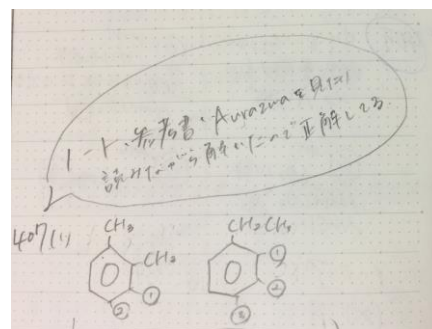 ノート、参考書、Aurazuaを見たり
読みながら解いたので正解してる.
407(1)
CH₃ CH₂CH₃
CH₃ ①
① ②
② ③